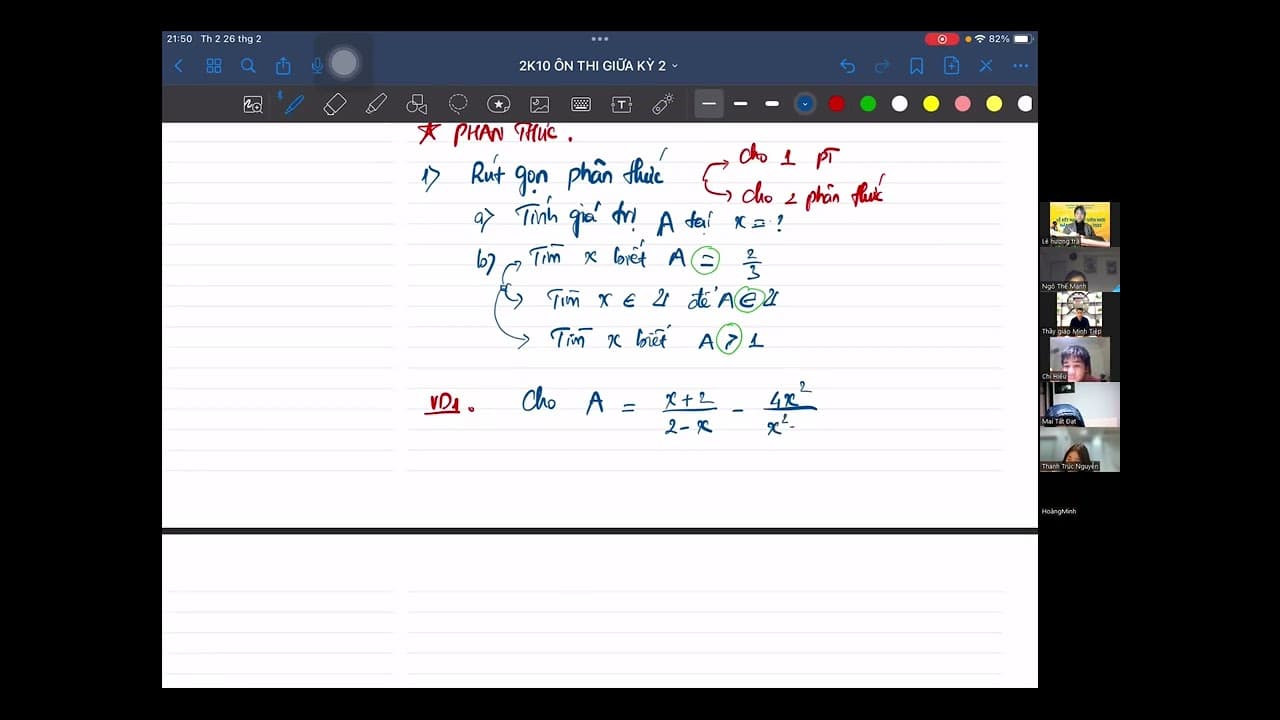 21:50 Th 2 26 thg 2
82%
2K10 ÔN THI GIỮA KỲ 2
★ PHÂN THỨC.
1) Rút gọn phân thức
cho 1 pT
cho 2 phân thức
a) Tính giá trị A tại x = ?
b) Tìm x biết A = 2/3
Tìm x ∈ Z để A ∈ Z
Tìm x biết A > 1
VD1. Cho A = x+2 / 2-x - 4x² / x²-
Lê hương trà
Ngô Thế Mạnh
Thầy giáo Minh Tiệp
Chi Hiếu
Mai Tất Đạt
Thanh Trúc Nguyễn
HoàngMinh